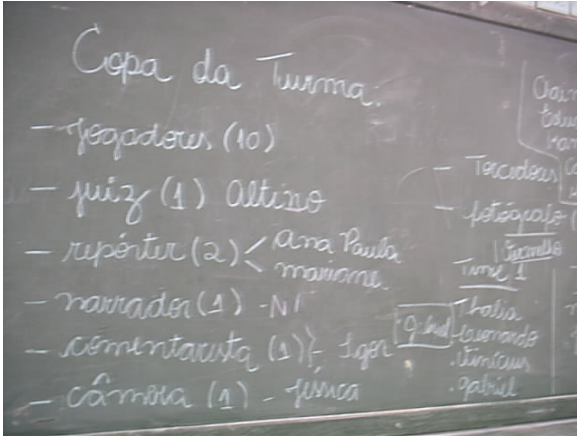 Copa da Turma:
- Jogadores (10)
- juiz (1) Altino
- repórter (2) < Ana Paula
mariane
- narrador (1) - N
- comentarista (1) - Igor
- câmera (1) - Jéssica
- Torcedores
- fotógrafo (
Vermelho
Time 1
Thalia
Leonardo
.Vinícius
.gabriel